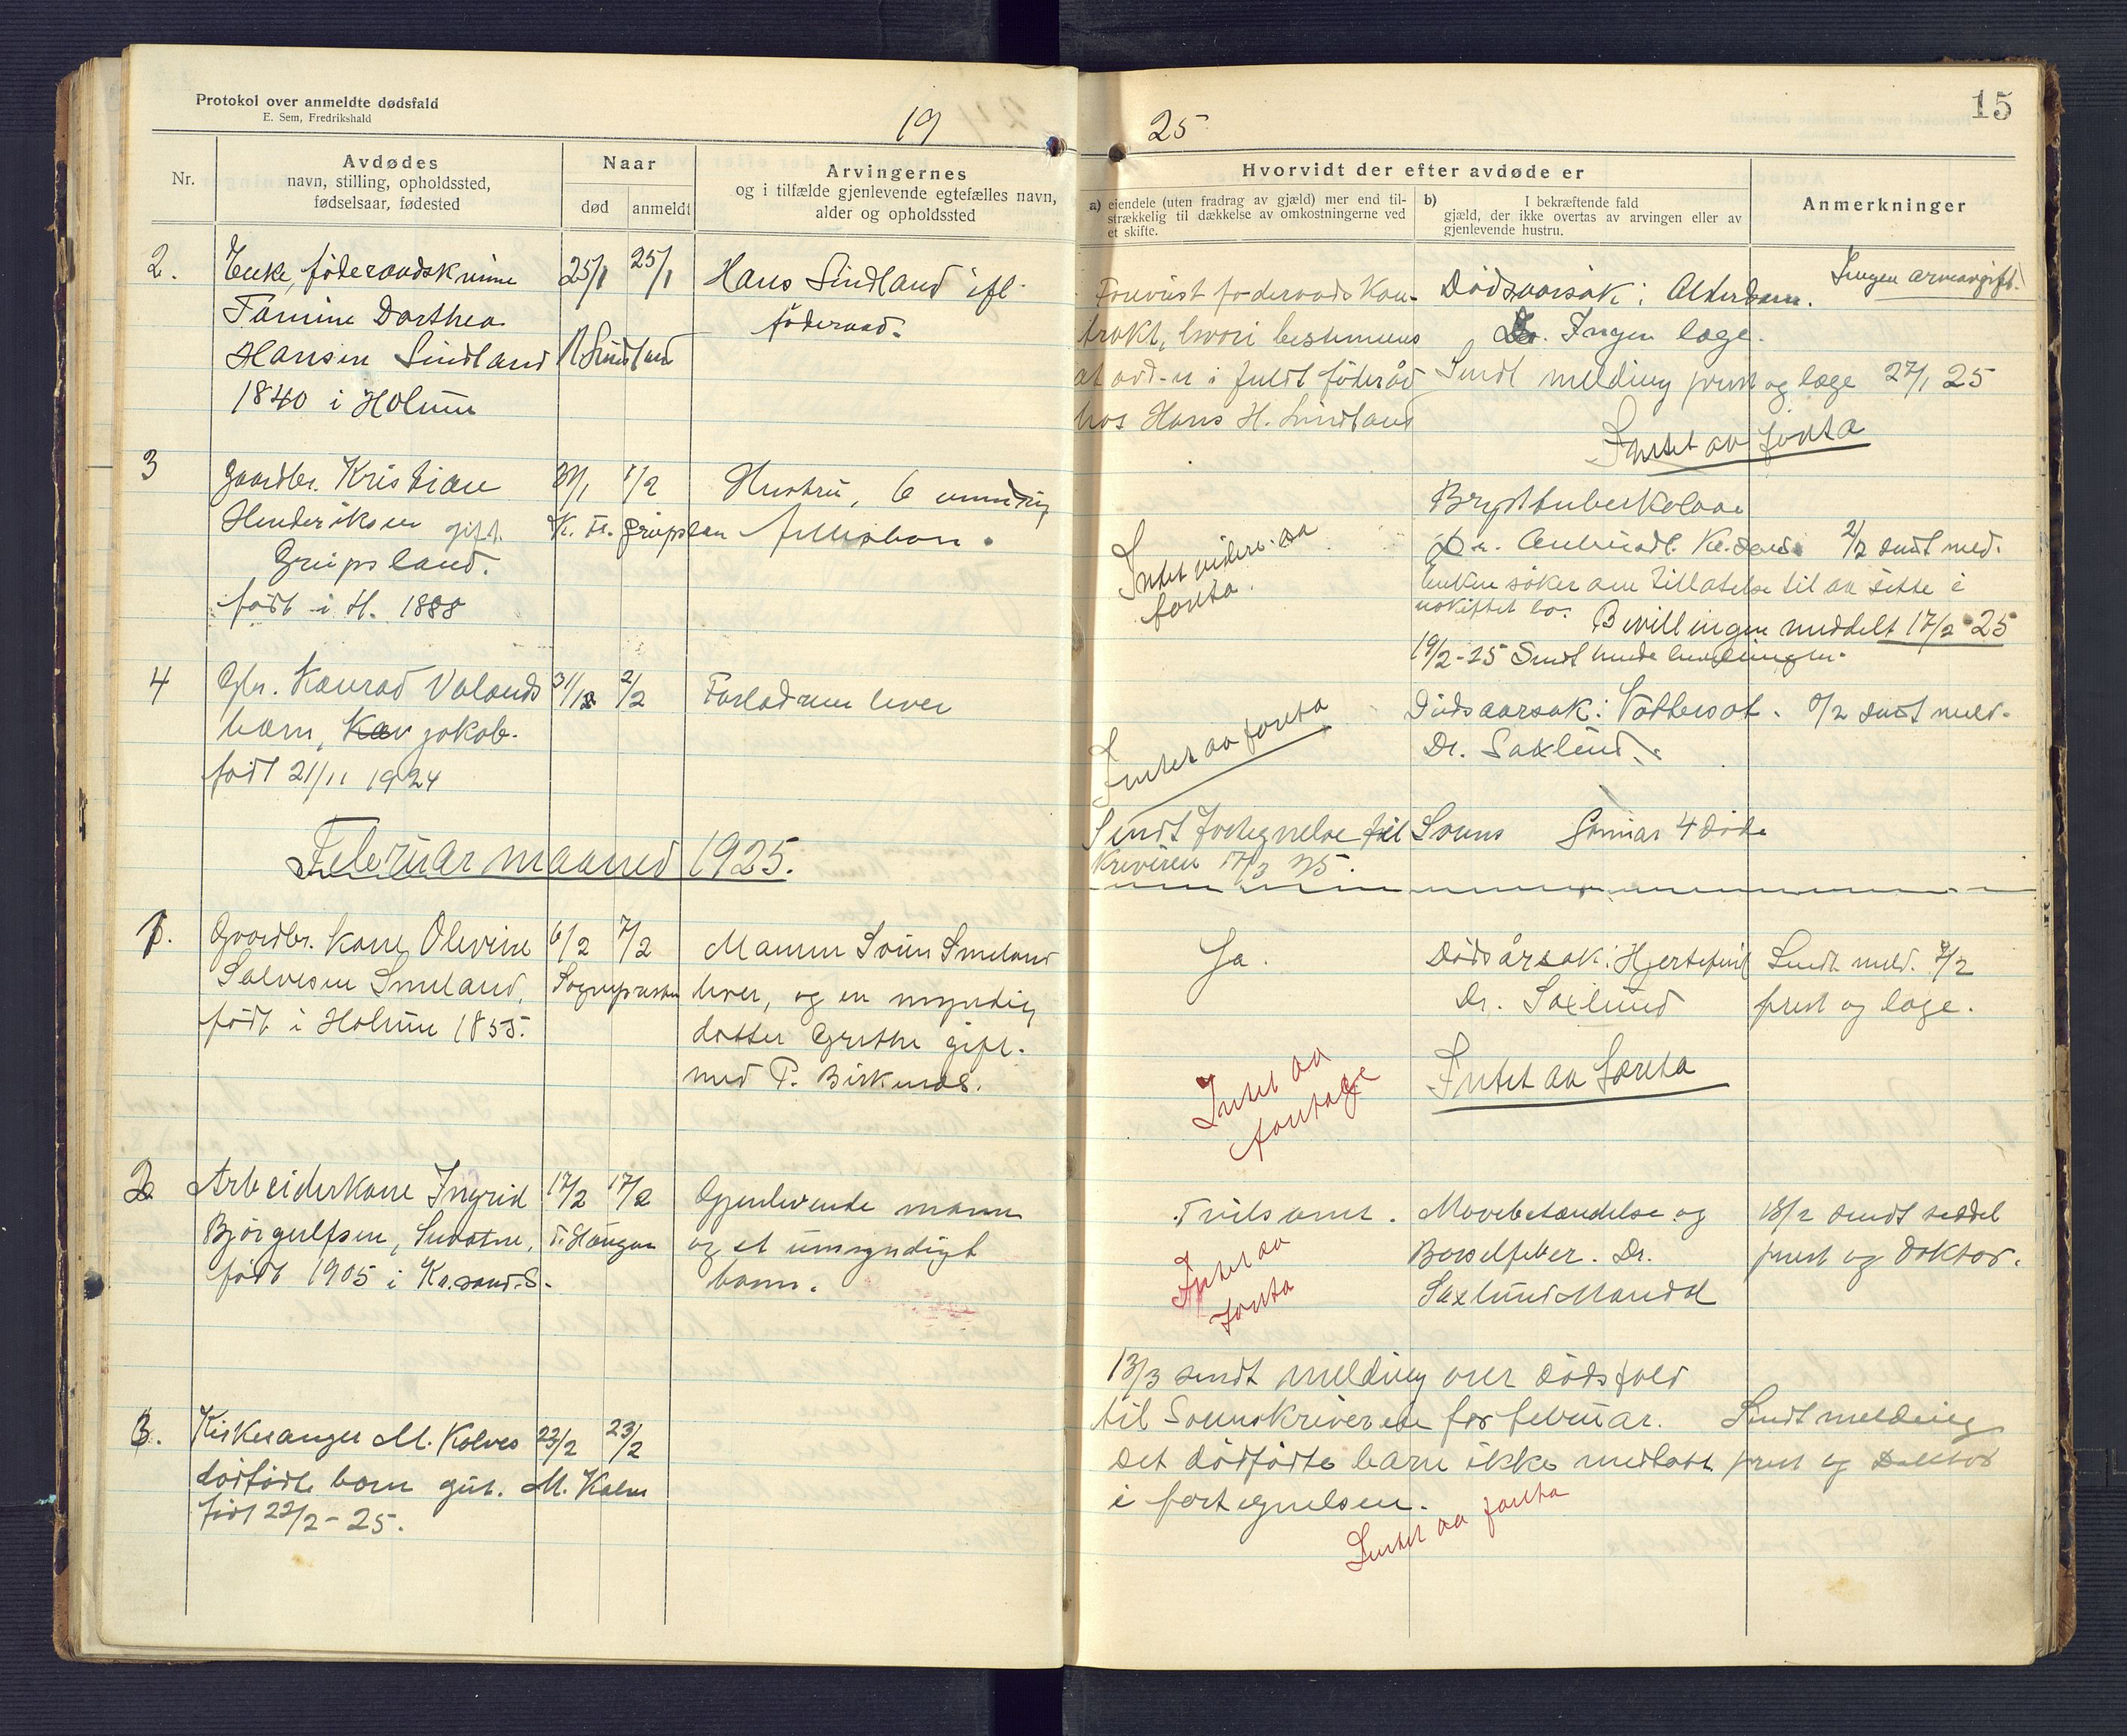 Protokol over anmeldte dødsfald
E. Sem, Fredrikshald
19
25
15
Nr.
Avdødes
navn, stilling, opholdssted,
fødselsaar, fødested
Naar
død
anmeldt
Arvingernes
og i tilfælde gjenlevende egtefælles navn,
alder og opholdssted
Hvorvidt der efter avdøde er
a) eiendele (uten fradrag av gjæld) mer end til-
strækkelig til dækkelse av omkostningerne ved
et skifte.
b) I bekræftende fald
gjæld, der ikke overtas av arvingen eller av
gjenlevende hustru.
Anmerkninger
2.
Enke, føderaadskvinne
Tamine Dorthea
Hansen Sindland
1840 i Holum
25/1 25/1
H Sindland
Hans Sindland ifl.
føderaad.
Forevist føderaadskon-
trakt, hvori bestemmes
at avd-n i fuldt føderåd
hos Hans H. Sindland
Dødsaarsak: Alderdom.
Dr. Ingen læge.
Sendt melding prest og læge 27/1 25
Intet aa foreta
Ingen arveavgift.
3
Gaardbr. Kristian
Henderiksen gift.
Gripsland.
født i H. 1888
31/1 1/2
K. Fr. Gripsland
Hustru, 6 umyndig
fellesbarn.
Intet videre aa
foreta.
Brysttuberkolose
Dr. Kr.sand. 2/2 sendt med.
Enken søker om tillatelse til aa sitte i
uskiftet bo. Bevillingen meddelt 17/2 25
19/2-25 Sendt hende bevillingen.
4
Gbr. Konrad Valands
barn, Kav jakob.
født 21/11 1924
31/12 2/2
Forældrene lever
Intet aa foreta
Dødsaarsak: Vattersot. 9/2 sendt meld.
Dr. Saxlund.
Sendt fortegnelse til Sorens
kriveren 17/3 25.
Januar 4 døde
Februar maaned 1925.
1.
Gaardbr. kone Olevine
Salvesen Smeland,
født i Holum 1855.
6/2 7/2
Sognepresten
Mannen Søren Smeland
lever, og en myndig
datter Grethe gift.
med P. Birkenes.
Ja.
Intet aa
foretage
Dødsårsak: Hjertefeil
Dr. Saxlund
Intet aa foreta
Sendt meld. 7/2
prest og læge.
2
Arbeiderkone Ingrid
Bjørgulfsen,
født 1905 i Kr.sand.S.
17/2 17/2
T. Haugen
Gjenlevende mann
og et umyndigt
barn.
Tvilsomt.
Intet aa
foreta
Mavebetændelse og
Barselfeber. Dr.
Saxlund Mandal
18/2 sendt seddel
prest og doktor.
3.
Kirkesanger M. Kolnes
dødfødt barn gut.
født 22/2-25.
23/2 23/2
M. Kolnes
13/3 sendt melding over dødsfald
til Sorenskriveren for februar.
Det dødfødte barn ikke medtatt
i fortegnelsen.
Intet aa foreta
Sendt melding
prest og Doktor